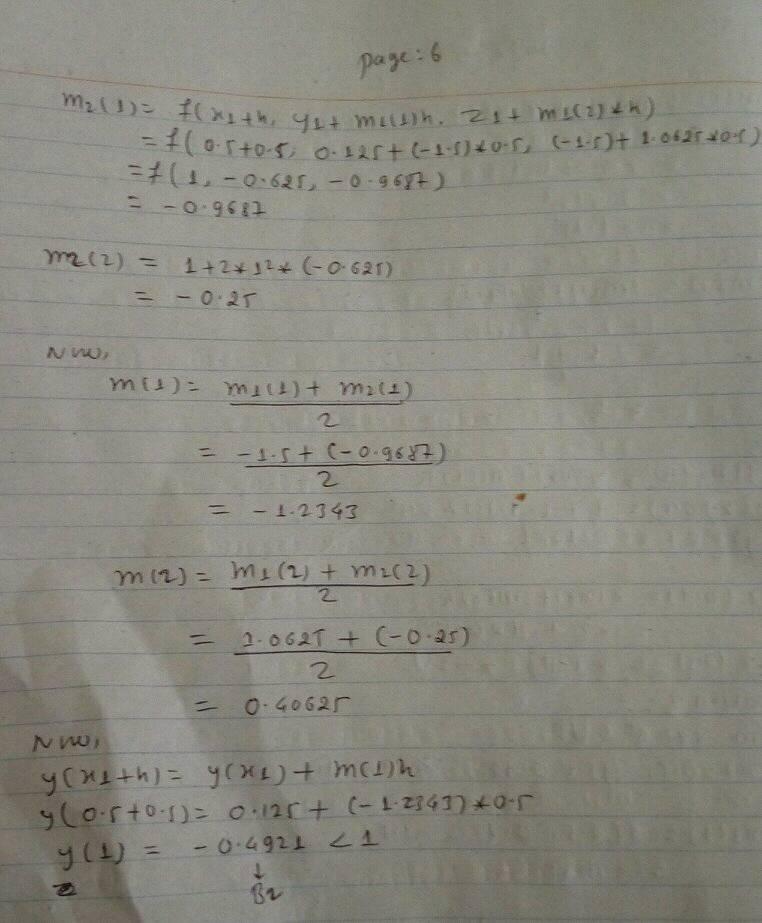 page: 6
m2(1) = f(x1+h, y1+m1(1)h, z1+m1(2)*h)
= f(0.5+0.5, 0.125+(-1.5)*0.5, (-1.5)+1.0625*0.5)
= f(1, -0.625, -0.9687)
= -0.9687
m2(2) = 1+2*1²*(-0.625)
= -0.25
Now,
m(1) = m1(1) + m2(1)
2
= -1.5 + (-0.9687)
2
= -1.2343
m(2) = m1(2) + m2(2)
2
= 1.0625 + (-0.25)
2
= 0.40625
Now,
y(x1+h) = y(x1) + m(1)h
y(0.5+0.5) = 0.125 + (-1.2343)*0.5
y(1) = -0.4921 < 1
↓
B2